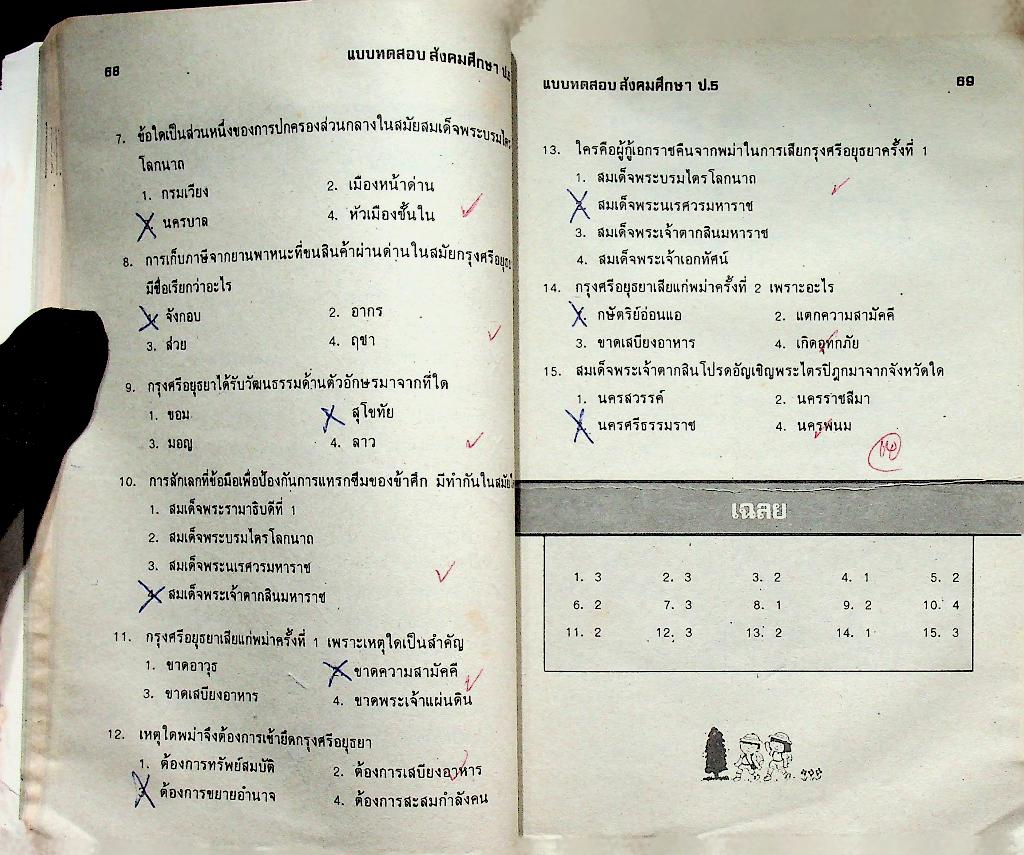 68
แบบทดสอบ สังคมศึกษา ป.5
7. ข้อใดเป็นส่วนหนึ่งของการปกครองส่วนกลางในสมัยสมเด็จพระบรมไตร
โลกนาถ
1. กรมเวียง 2. เมืองหน้าด่าน
นครบาล 4. หัวเมืองชั้นใน
8. การเก็บภาษีจากยานพาหนะที่ขนสินค้าผ่านด่านในสมัยกรุงศรีอยุธยา
มีชื่อเรียกว่าอะไร
1. จังกอบ 2. อากร
3. ส่วย 4. ฤชา
9. กรุงศรีอยุธยาได้รับวัฒนธรรมด้านตัวอักษรมาจากที่ใด
1. ขอม สุโขทัย
3. มอญ 4. ลาว
10. การสักเลกที่ข้อมือเพื่อป้องกันการแทรกซึมของข้าศึก มีทำกันในสมัย
1. สมเด็จพระรามาธิบดีที่ 1
2. สมเด็จพระบรมไตรโลกนาถ
3. สมเด็จพระนเรศวรมหาราช
4. สมเด็จพระเจ้าตากสินมหาราช
11. กรุงศรีอยุธยาเสียแก่พม่าครั้งที่ 1 เพราะเหตุใดเป็นสำคัญ
1. ขาดอาวุธ ขาดความสามัคคี
3. ขาดเสบียงอาหาร 4. ขาดพระเจ้าแผ่นดิน
12. เหตุใดพม่าจึงต้องการเข้ายึดกรุงศรีอยุธยา
1. ต้องการทรัพย์สมบัติ 2. ต้องการเสบียงอาหาร
ต้องการขยายอำนาจ 4. ต้องการสะสมกำลังคน
แบบทดสอบ สังคมศึกษา ป.5
69
13. ใครคือผู้กู้เอกราชคืนจากพม่าในการเสียกรุงศรีอยุธยาครั้งที่ 1
1. สมเด็จพระบรมไตรโลกนาถ
2. สมเด็จพระนเรศวรมหาราช
3. สมเด็จพระเจ้าตากสินมหาราช
4. สมเด็จพระเจ้าเอกทัศน์
14. กรุงศรีอยุธยาเสียแก่พม่าครั้งที่ 2 เพราะอะไร
1. กษัตริย์อ่อนแอ 2. แตกความสามัคคี
3. ขาดเสบียงอาหาร 4. เกิดอุทกภัย
15. สมเด็จพระเจ้าตากสินโปรดอัญเชิญพระไตรปิฎกมาจากจังหวัดใด
1. นครสวรรค์ 2. นครราชสีมา
นครศรีธรรมราช 4. นครพนม
เฉลย
1. 3 2. 3 3. 2 4. 1 5. 2
6. 2 7. 3 8. 1 9. 2 10. 4
11. 2 12. 3 13. 2 14. 1 15. 3